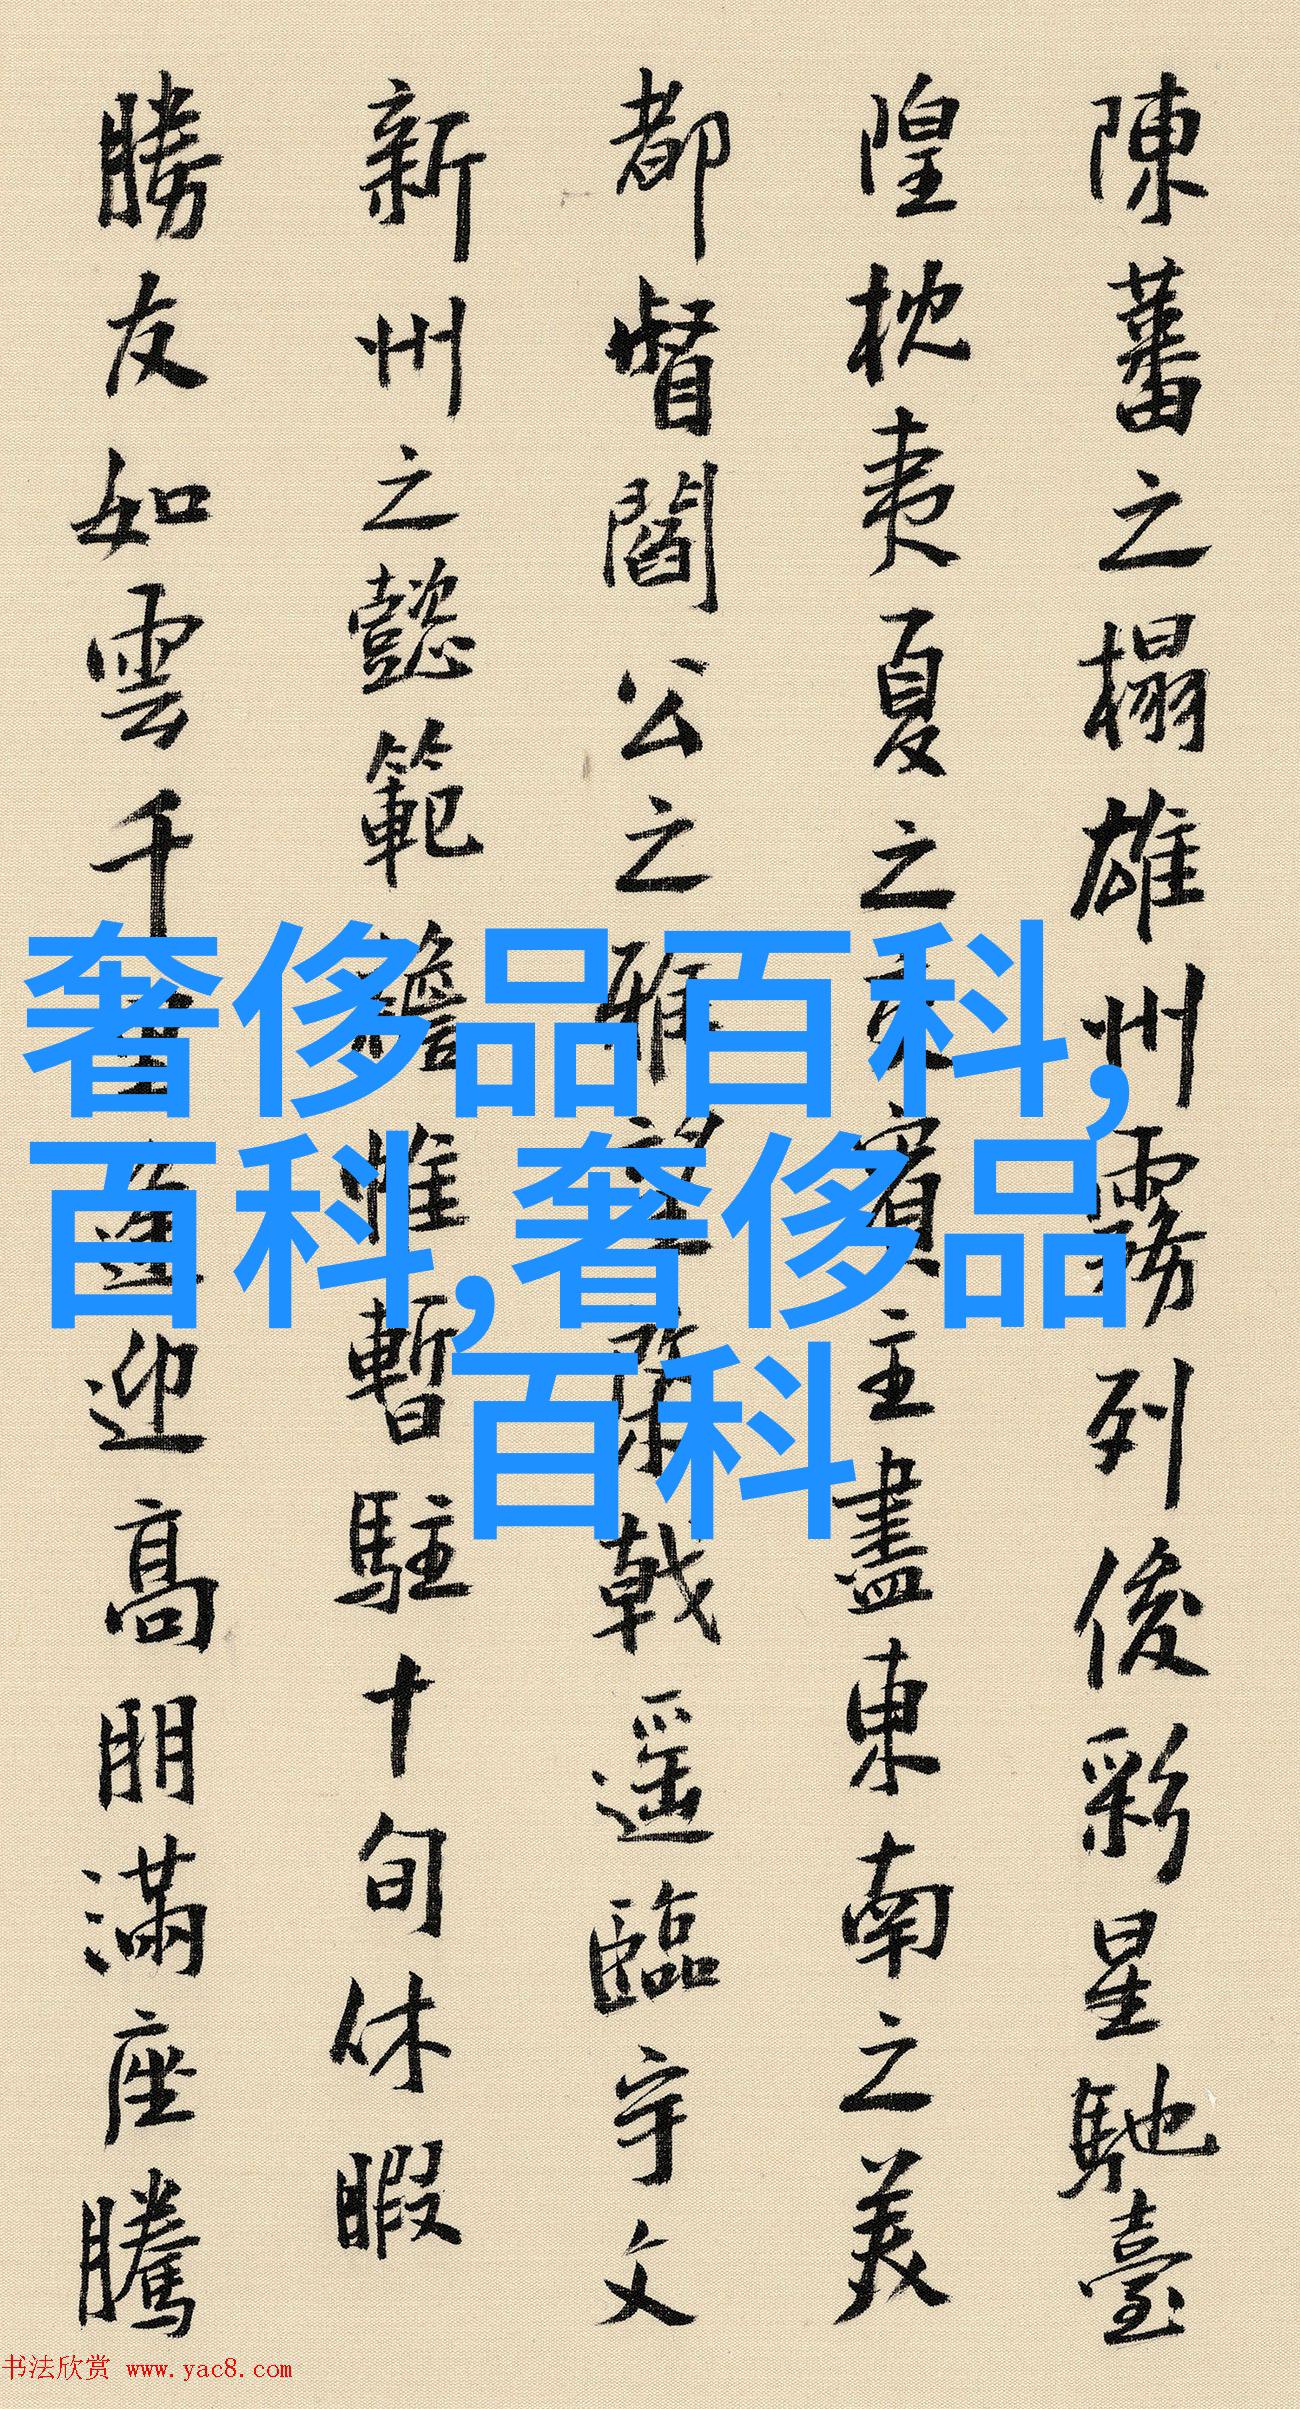 陳蕃之榻雄州霧列俊彩星馳臺
隍枕夷夏之交賓主盡東南之美
都督閻公之雅望棨戟遥臨宇文
新州之懿範襜帷暫駐十旬休暇
勝友如雲千里逢迎高朋滿座騰
奢侈品百科,
百科,奢侈品
百科
书法欣赏 www.yac8.com